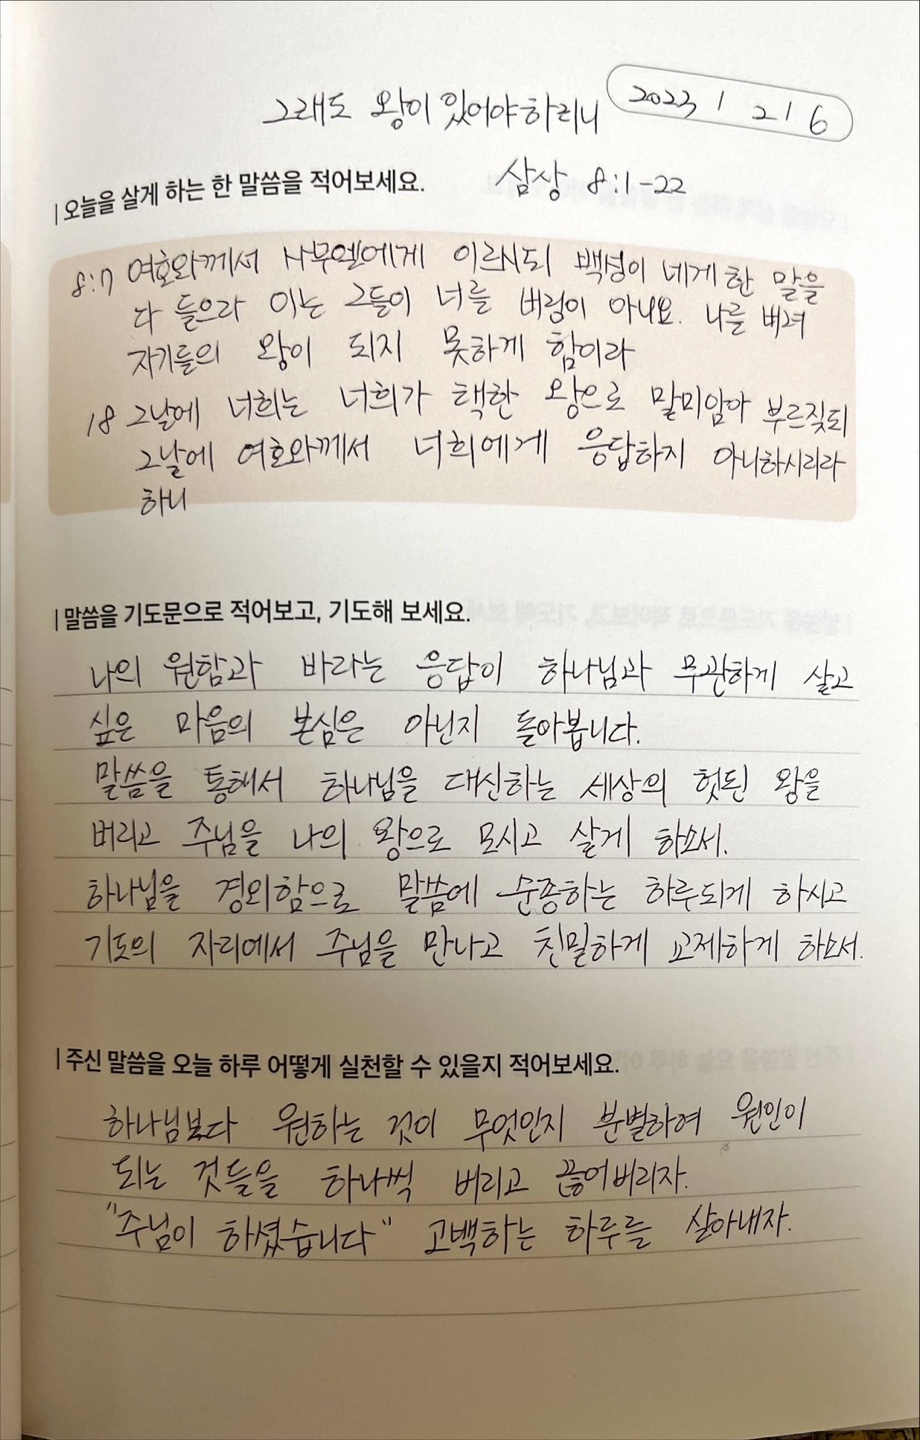 그래도 왕이 있어야하리니
2023 / 2 / 6
| 오늘을 살게 하는 한 말씀을 적어보세요.
삼상 8:1-22
8:7 여호와께서 사무엘에게 이르시되 백성이 네게 한 말을
다 들으라 이는 그들이 너를 버림이 아니요. 나를 버려
자기들의 왕이 되지 못하게 함이라
18 그날에 너희는 너희가 택한 왕으로 말미암아 부르짖되
그날에 여호와께서 너희에게 응답하지 아니하시리라
하니
| 말씀을 기도문으로 적어보고, 기도해 보세요.
나의 원함과 바라는 응답이 하나님과 무관하게 살고
싶은 마음의 본심은 아닌지 돌아봅니다.
말씀을 통해서 하나님을 대신하는 세상의 헛된 왕을
버리고 주님을 나의 왕으로 모시고 살게 하소서.
하나님을 경외함으로 말씀에 순종하는 하루되게 하시고
기도의 자리에서 주님을 만나고 친밀하게 교제하게 하소서.
| 주신 말씀을 오늘 하루 어떻게 실천할 수 있을지 적어보세요.
하나님보다 원하는 것이 무엇인지 분별하여 원인이
되는 것들을 하나씩 버리고 끊어버리자.
"주님이 하셨습니다" 고백하는 하루를 살아내자.